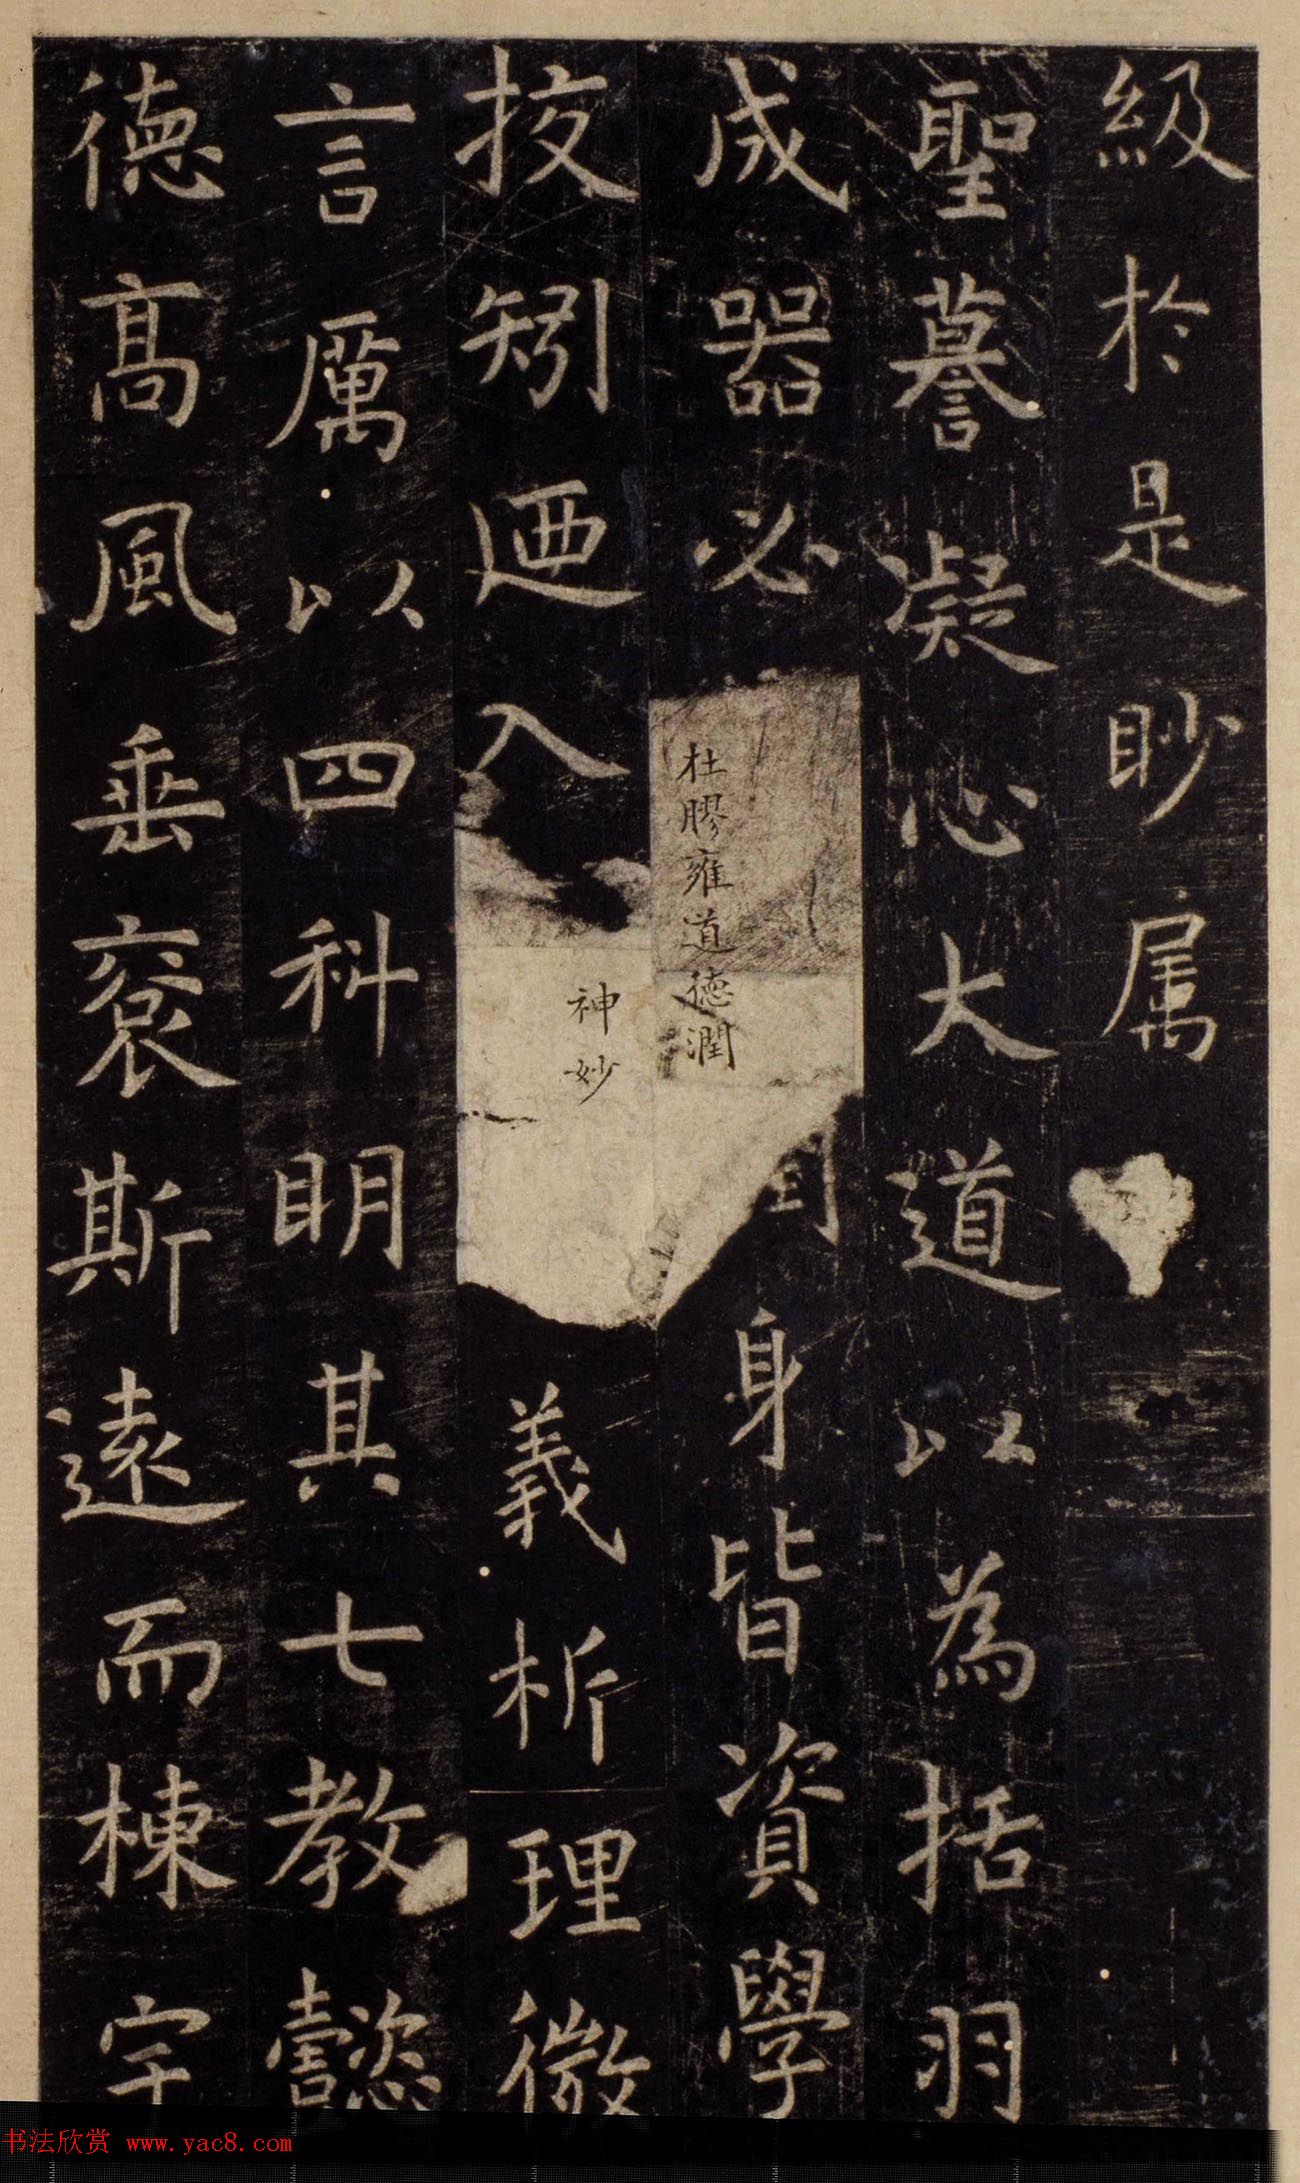 級於是眇屬
聖謩凝心大道以爲括羽
成器必
杜膠雍道德潤
身皆資學
技矧迺入
神妙
義析理微
言厲以四科明其七教懿
德高風垂裒斯遠而棟宇
书法欣赏 www.yac8.com